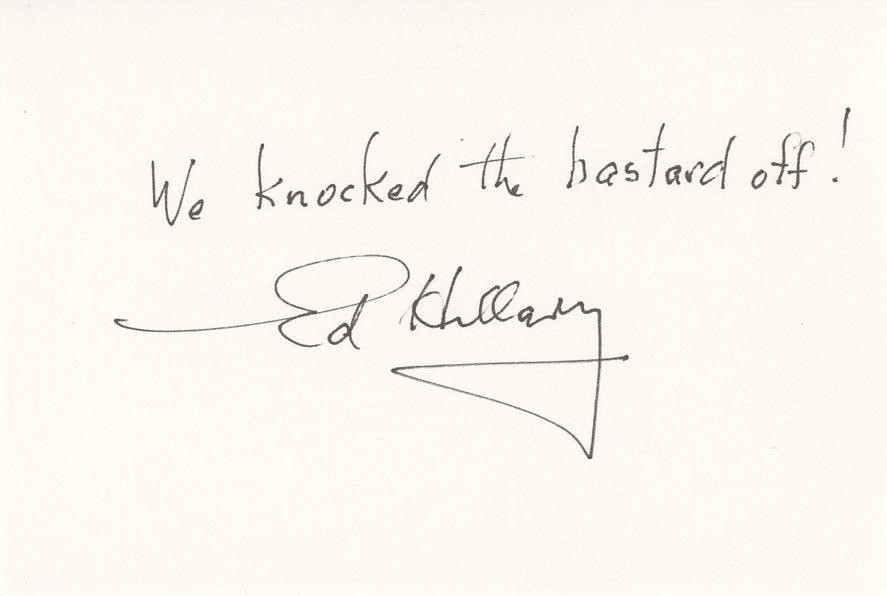 We knocked the bastard off!
Ed Hillary